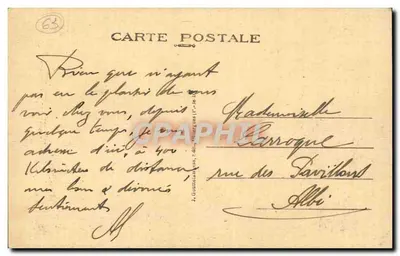 63
CARTE POSTALE
Bien que n'ayant
pas eu le plaisir de vous
voir chez vous, depuis
quelque temps, je vous
adresse d'ici, à 400
Kilomètres de distance
mes bons & dévoués
sentiments
Mademoiselle
Larroque
rue des Pavillons
Albi
CARTORUM